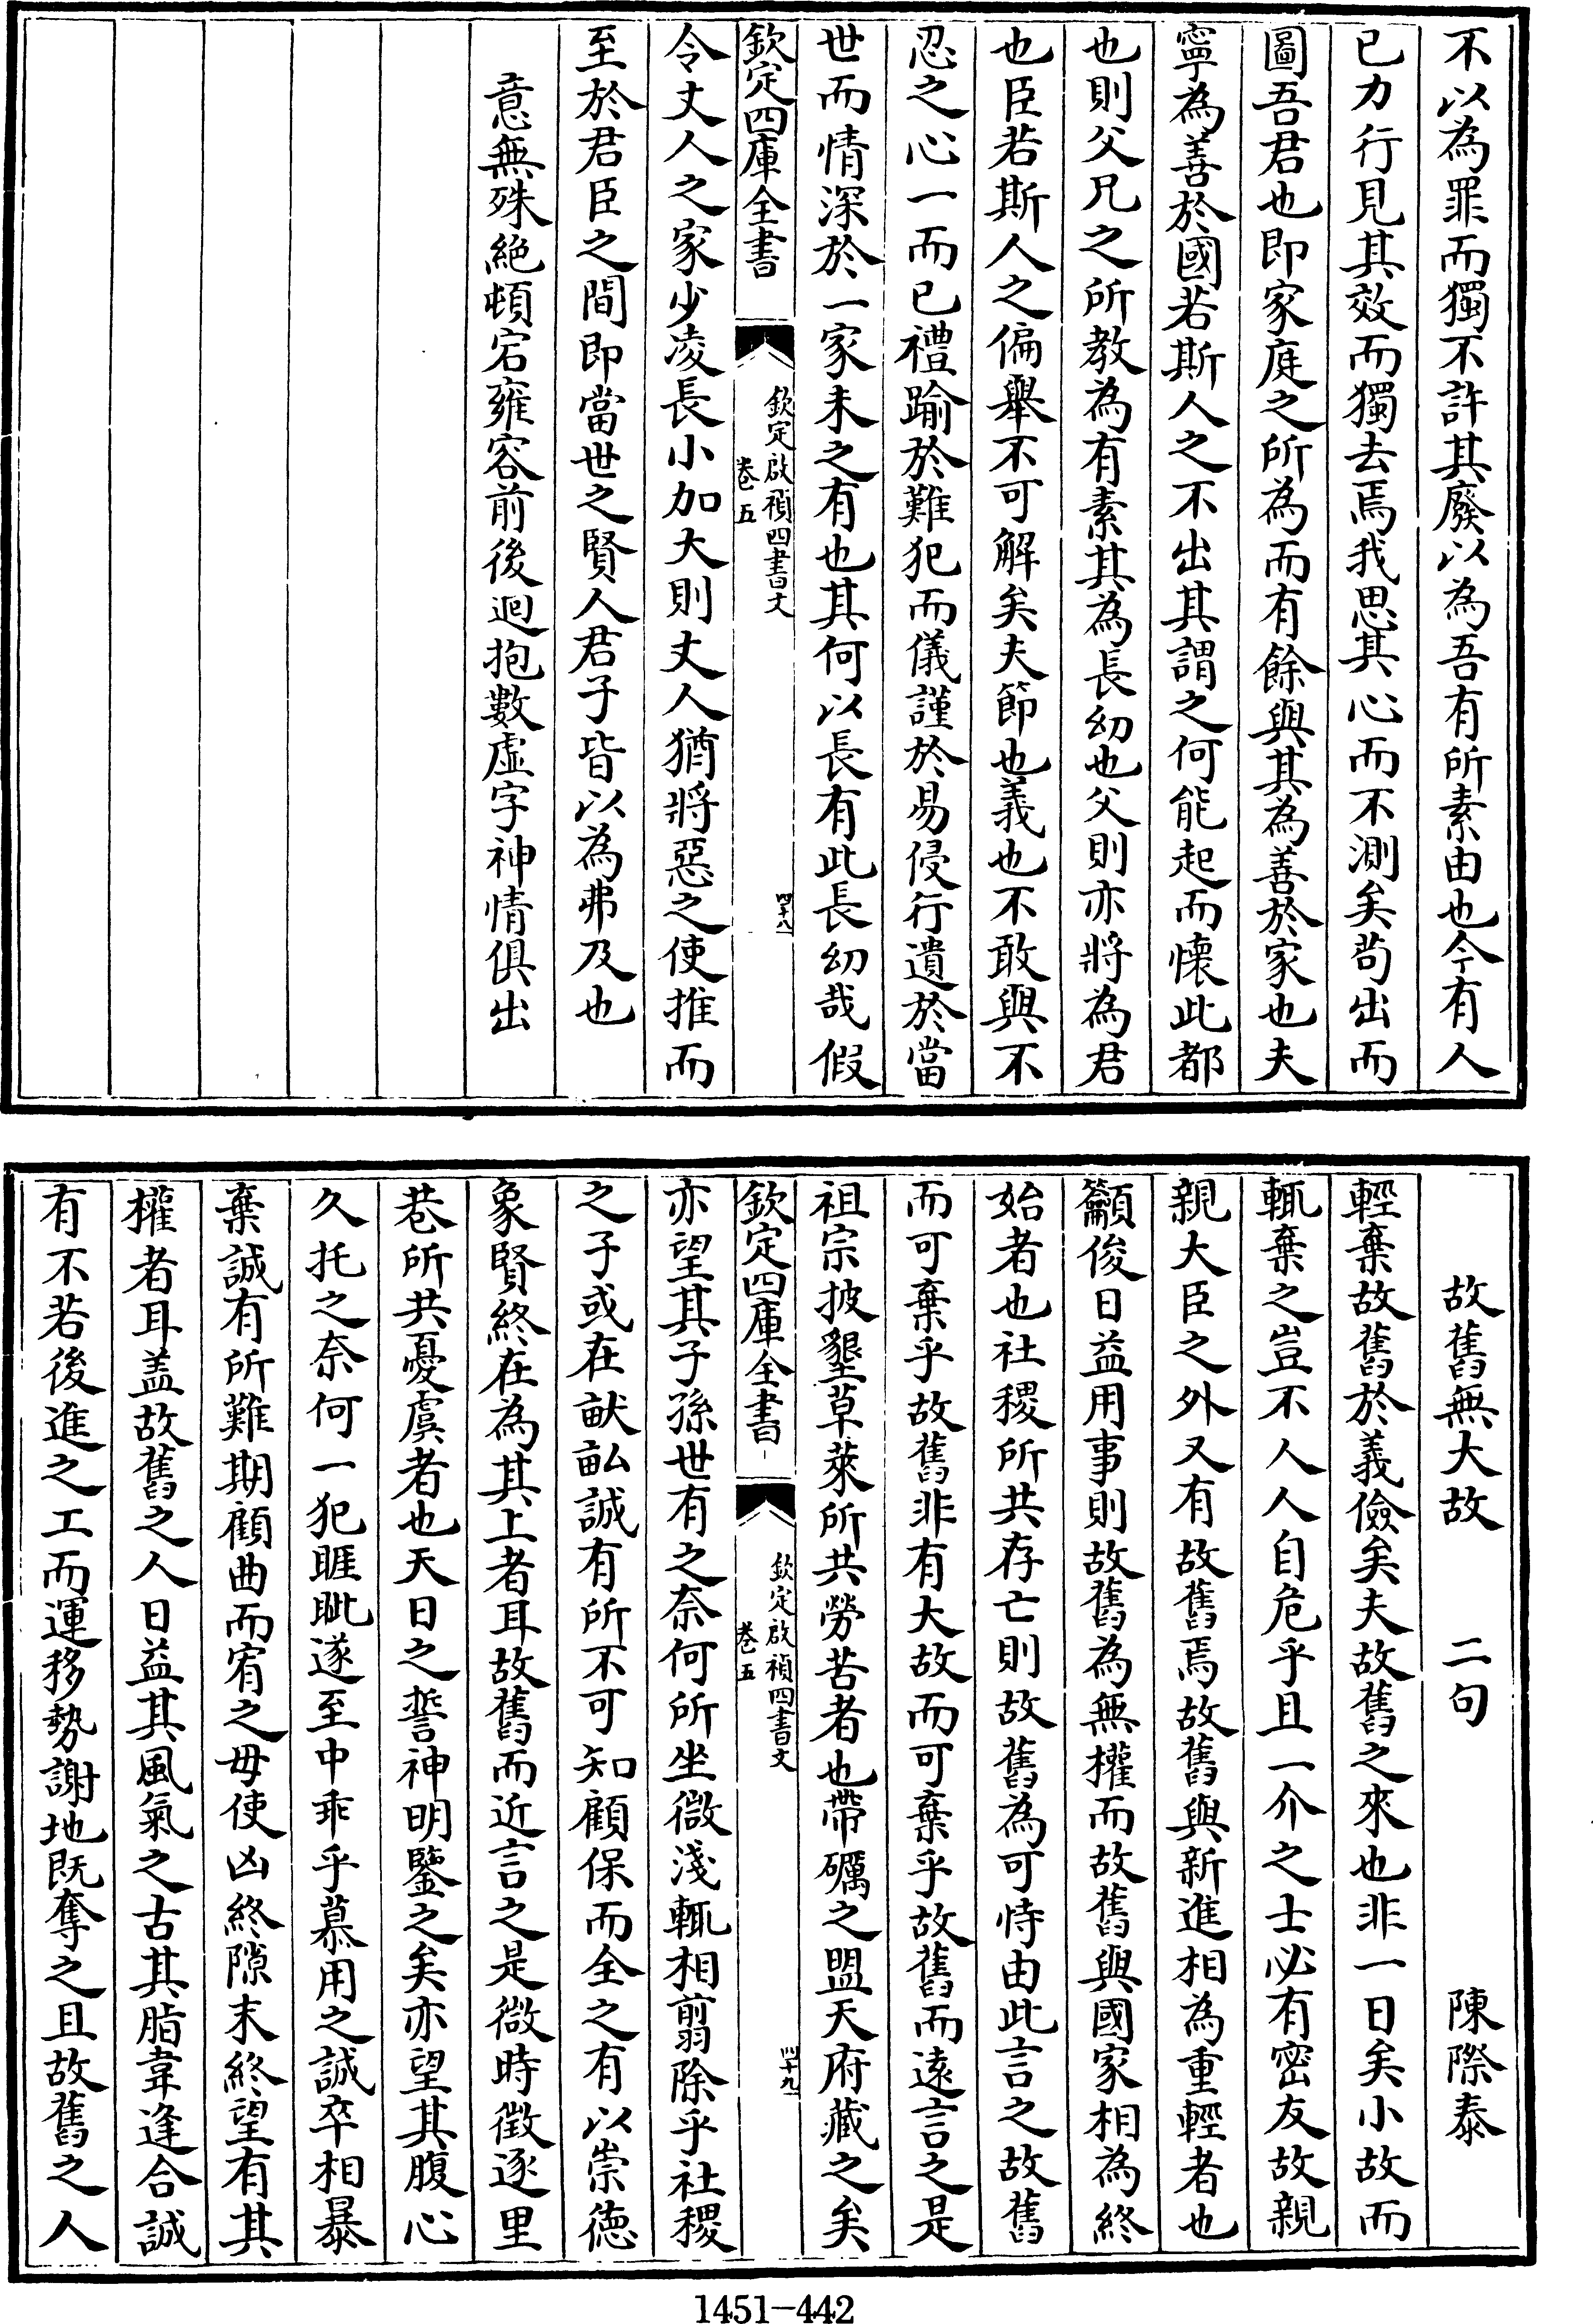 不以為罪而獨不許其廢以為吾有所素由也今有人
已力行見其效而獨去焉我思其心而不測矣苟出而
圖吾君也即家庭之所為而有餘與其為善於家也夫
寧為善於國若斯人之不出其謂之何能起而懷此都
也則父兄之所教為有素其為長幼也父則亦將為君
也臣若斯人之偏舉不可解矣夫節也義也不敢與不
忍之心一而已禮踰於難犯而儀謹於易侵行遺於當
世而情深於一家未之有也其何以長有此長幼哉假
欽定四庫全書
欽定啟禎四書文
卷五
四十八
令丈人之家少凌長小加大則丈人猶將惡之使推而
至於君臣之間即當世之賢人君子皆以為弗及也
意無殊絶頓宕雍容前後迴抱數虛字神情俱出
故舊無大故 二句 陳際泰
輕棄故舊於義儉矣夫故舊之來也非一日矣小故而
輒棄之豈不人人自危乎且一介之士必有密友故親
親大臣之外又有故舊焉故舊與新進相為重輕者也
籲俊日益用事則故舊為無權而故舊與國家相為終
始者也社稷所共存亡則故舊為可恃由此言之故舊
而可棄乎故舊非有大故而可棄乎故舊而遠言之是
祖宗披墾草萊所共勞苦者也帶礪之盟天府藏之矣
欽定四庫全書
欽定啟禎四書文
卷五
四十九
亦望其子孫世有之奈何所坐微淺輒相翦除乎社稷
之子或在畎畝誠有所不可知顧保而全之有以崇德
象賢終在為其上者耳故舊而近言之是微時徵逐里
巷所共憂虞者也天日之誓神明鑒之矣亦望其腹心
久托之奈何一犯睚眦遂至中乖乎慕用之誠卒相暴
棄誠有所難期顧曲而宥之毋使凶終隙末終望有其
權者耳盖故舊之人日益其風氣之古其脂韋逢合誠
有不若後進之工而運移勢謝地既奪之且故舊之人
1451-442